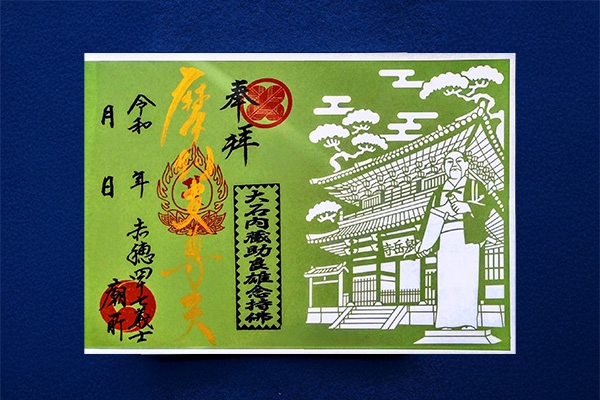 泉岳寺
奉拝
大石内蔵助良雄念持佛
摩利支尊天
令和 年
月 日
赤穂四十七義士
廟所